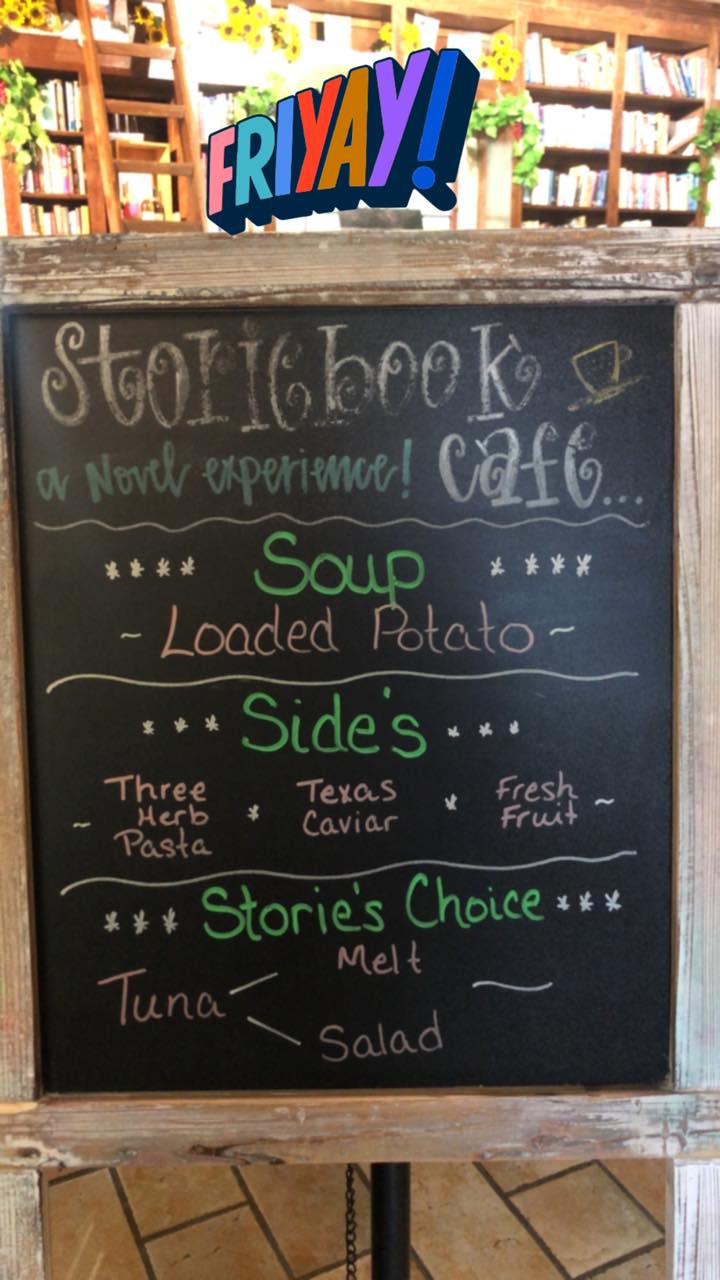 FRIYAY!
Storiebook
a Novel experience! Cafe...
**** Soup ****
~ Loaded Potato ~
*** Side's ***
Three Herb Pasta * Texas Caviar * Fresh Fruit ~
*** Storie's Choice ***
Melt
Tuna
Salad